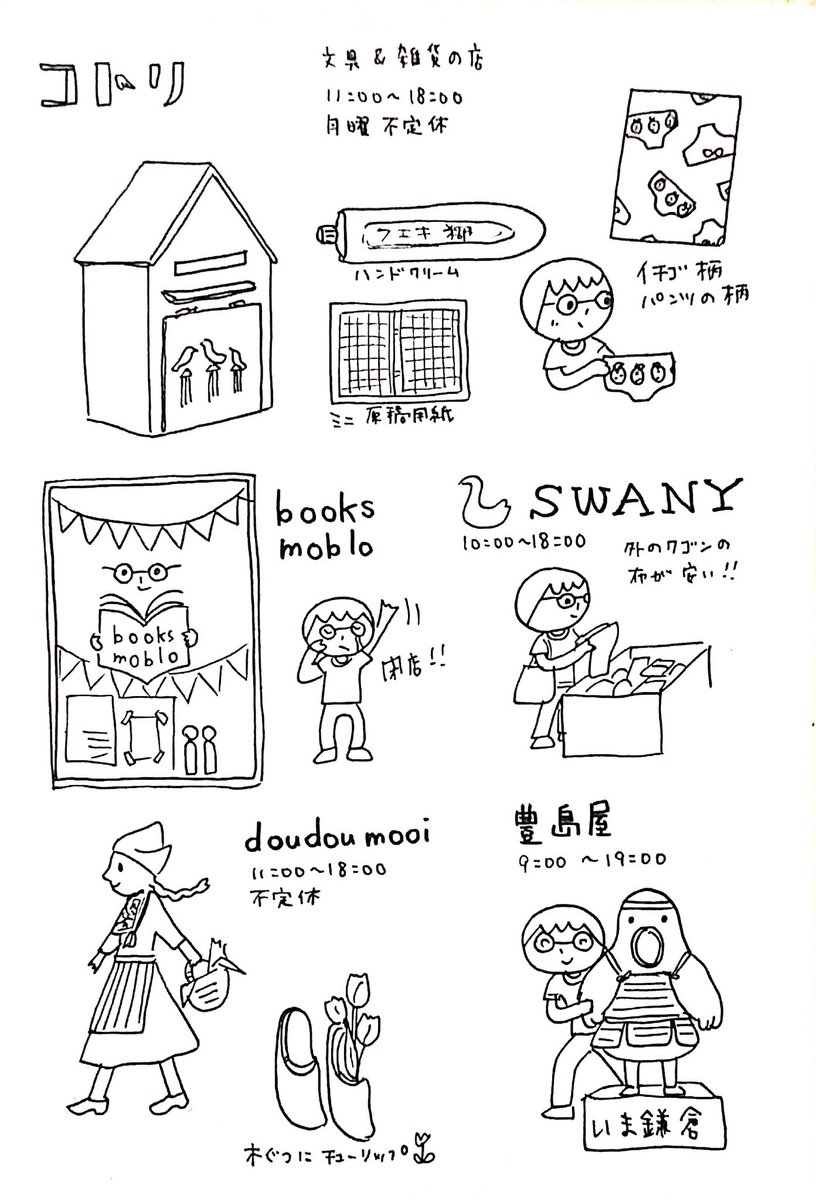 コトリ
文具&雑貨の店
11:00〜18:00
月曜 不定休
フエキ糊
ハンドクリーム
ミニ 原稿用紙
イチゴ柄
パンツの柄
books
moblo
books
moblo
閉店!!
SWANY
10:00〜18:00
外のワゴンの
布が安い!!
doudou mooi
11:00〜18:00
不定休
木ぐつに チューリップ
豊島屋
9:00 〜19:00
いま鎌倉